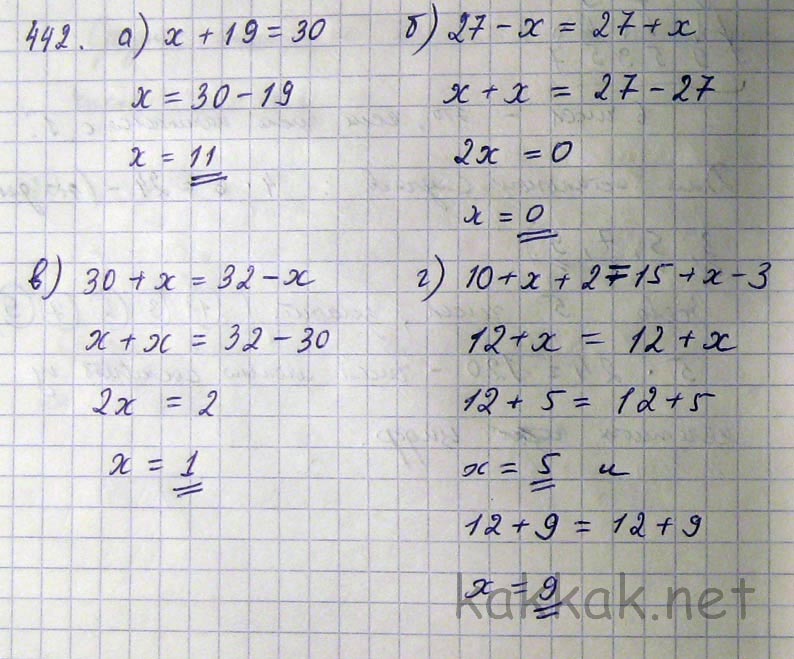 442. а) x + 19 = 30
x = 30 - 19
x = 11
б) 27 - x = 27 + x
x + x = 27 - 27
2x = 0
x = 0
в) 30 + x = 32 - x
x + x = 32 - 30
2x = 2
x = 1
г) 10 + x + 2 = 15 + x - 3
12 + x = 12 + x
12 + 5 = 12 + 5
x = 5 и
12 + 9 = 12 + 9
x = 9
kakkak.net